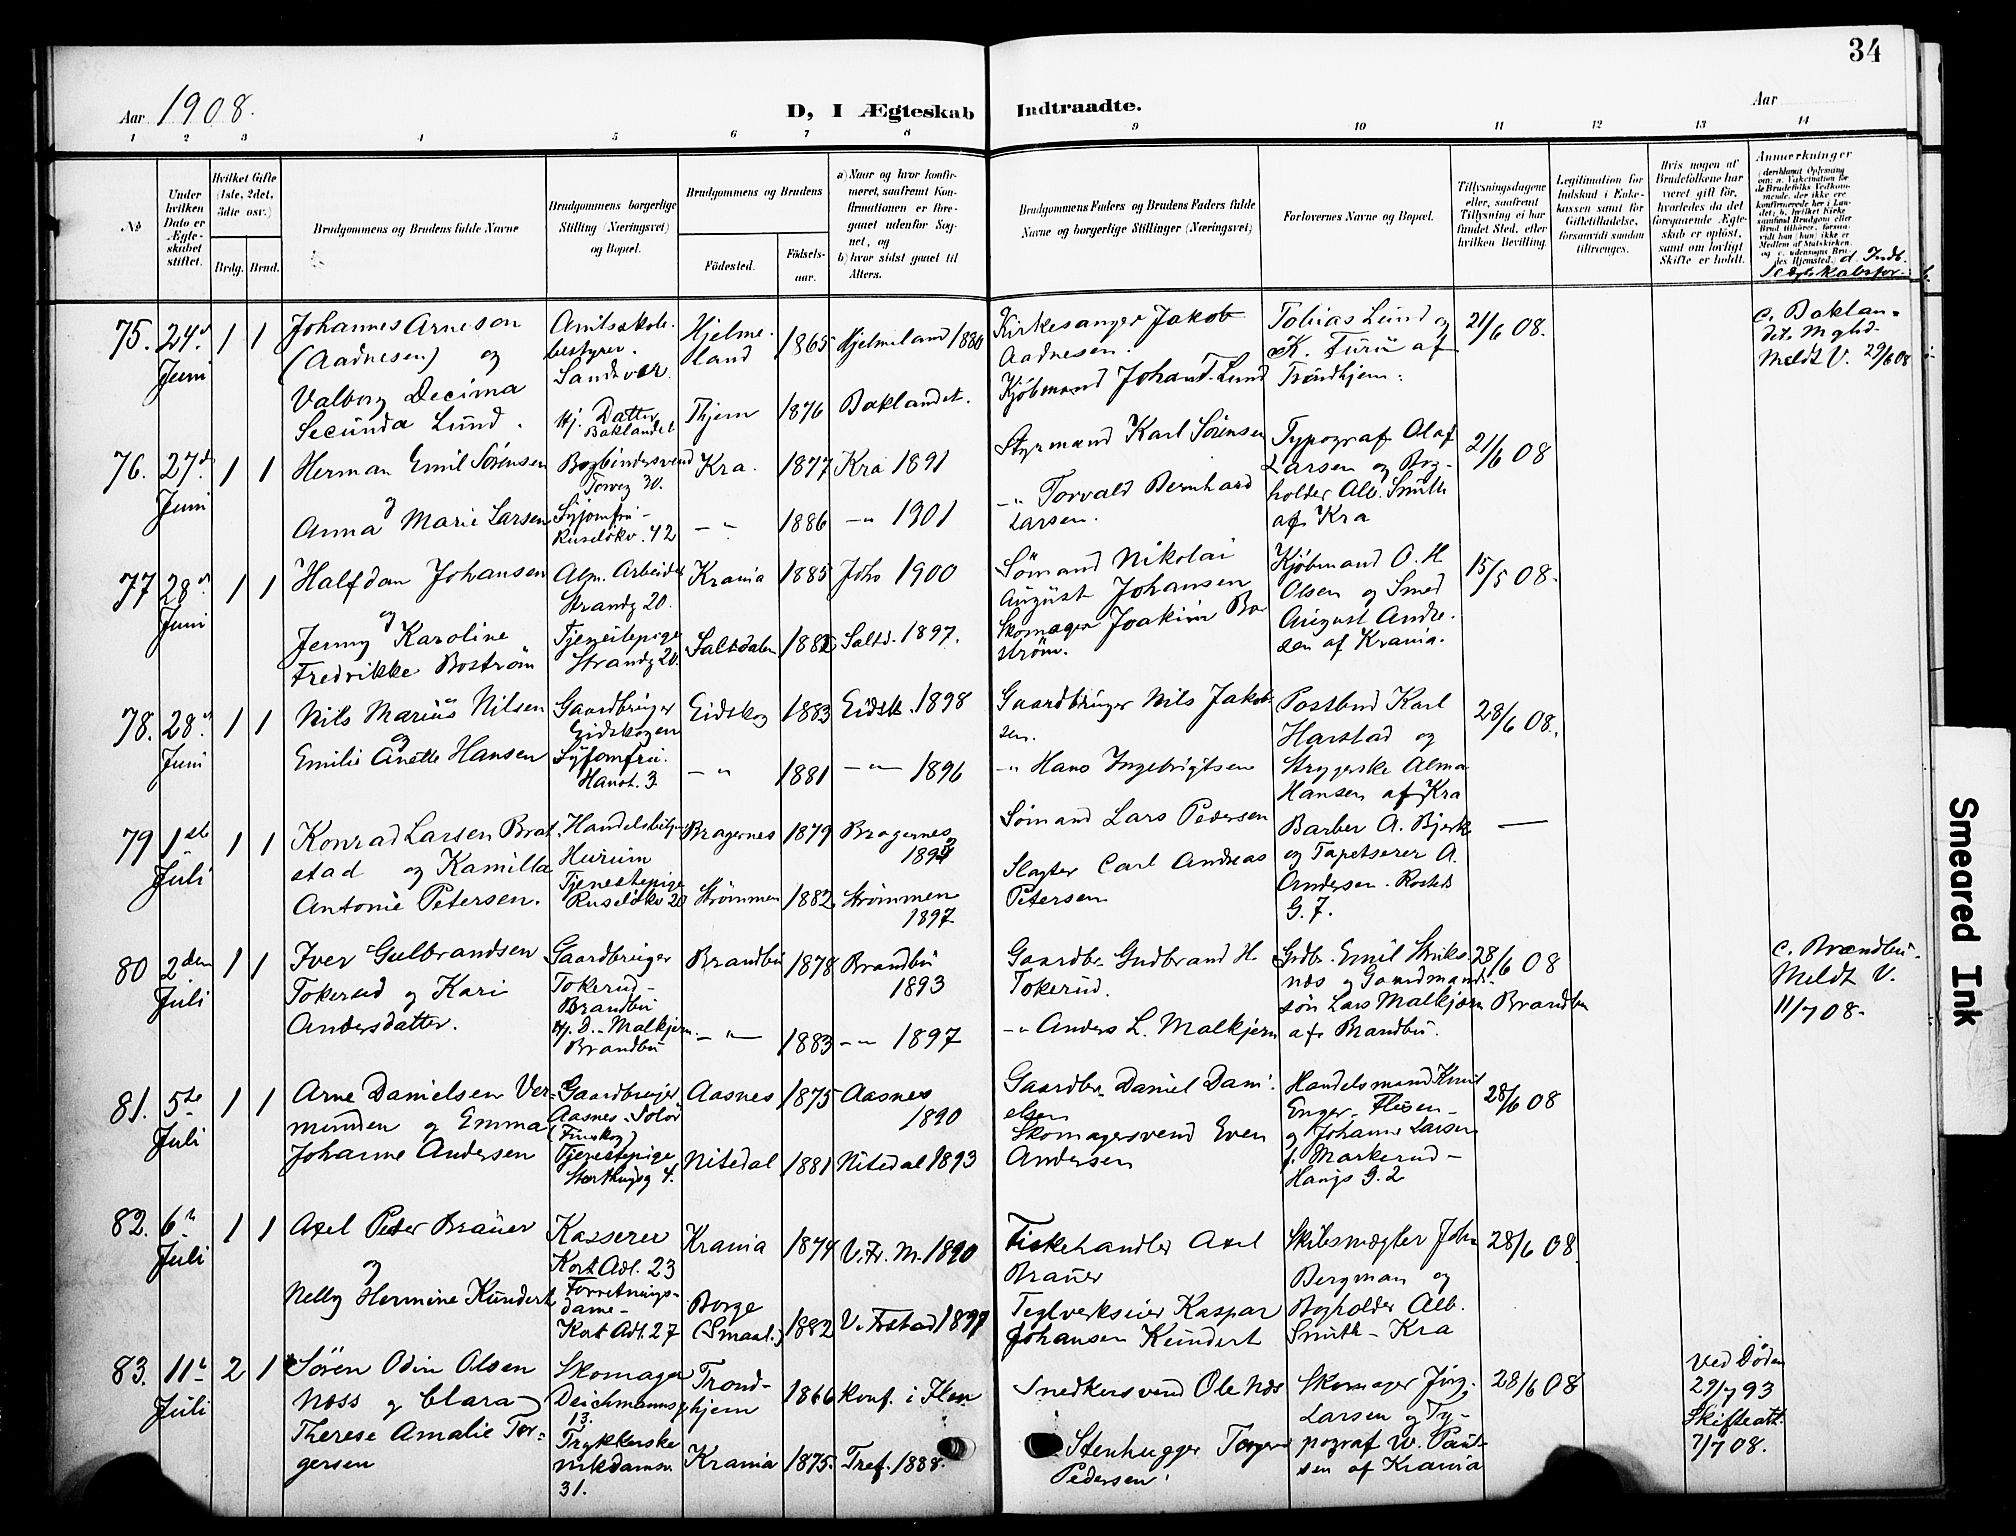 34
Aar 1908.
D, I Ægteskab Indtraadte.
Aar
1 2 3 4 5 6 7 8 9 10 11 12 13 14
No
Under hvilken Dato er Ægteskabet stiftet.
Hvilket Gifte (1ste, 2det, 3die osv.)
Brdg. Brud.
Brudgommens og Brudens fulde Navne
Brudgommens borgerlige Stilling (Næringsvei) og Bopæl.
Brudgommens og Brudens
Fødested.
Fødsels-aar.
a) Naar og hvor konfirmeret, saafremt Konfirmationen er foregaaet udenfor Sognet, og
b) hvor sidst gaaet til Alters.
Brudgommens Faders og Brudens Faders fulde Navne og borgerlige Stillinger (Næringsvei)
Forlovernes Navne og Bopæl.
Tillysningsdagene eller, saafremt Tillysning ei har fundet Sted, efter hvilken Bevilling.
Legitimation for Indskud i Enkekassen samt for Giftetilladelse, forsaavidt saadan tiltrænges.
Hvis nogen af Brudefolkene har været gift før, hvorledes da det foregaaende Ægteskab er opløst, samt om lovligt Skifte er holdt.
Anmærkninger
75. 24d Juni 1 1
Johannes Arneson
(Aadnesen) og
Valborg Decima
Secunda Lund.
Amtsskole-
bestyrer.
Sandsvær
Hj. Datter
Baklandet
Hjelme-
land
1865
Hjelmeland 1880
Thjem 1876 Baklandet.
Kirkesanger Jakob
Aadnesen.
Kjøbmand Johan T. Lund
Tobias Lund og
K. Furu af
Trondhjem.
21/6 08.
c. Baklan-
det. Mghd.
Meldt V. 29/6 08
76. 27d Juni 1 1
Herman Emil Sørensen
og
Anna Marie Larsen
Bogbindersvend
Torvg 30.
Syjomfru-
Ruseløkv. 42
Kra. 1877 Kra 1891
-"- 1886 -"- 1901
Styrmand Karl Sörensen
-"- Torvald Bernhard
Larsen.
Typograf Olaf
Larsen og Bog-
holder Alb. Smith
af Kra
21/6 08
77 28d Juni 1 1
Halfdan Johansen
og
Jenny Karoline
Fredrikke Boström
Alm. Arbeider
Strandg 20.
Tjenestepige
Strandg 20.
Krania 1885 Joho 1900
Saltdalen 1882 Saltd. 1897.
Sömand Nikolai
August Johansen
Skomager Joakim Bo-
ström.
Kjöbmand O. H
Olsen og Smed
August Andre-
sen af Krania.
15/5 08.
78. 28d Juni 1 1
Nils Marius Nilsen
og
Emilie Anette Hansen
Gaardbruger
Eidskogen
Syjomfru.
Hanst. 3
Eidskog 1883 Eidsk. 1898
-"- 1881 -"- 1896
Gaardbruger Nils Jakob-
sen.
-"- Hans Ingebrigtsen
Postbud Karl
Harstad og
Strygerske Alma
Hansen af Kra
28/6 08.
79 1ste Juli 1 1
Konrad Larsen Brat-
stad og Kamilla
Antonie Petersen.
Handelsbetjent
Hurum
Tjenestepige
Ruseløkv 20
Bragernes 1879 Bragernes
Strömmen 1882 Strömmen
1897
Sömand Lars Pedersen
Slagter Carl Andreas
Petersen
Barber A. Bjerk
og Tapetserer A.
Andersen. Rosteds
G. 7.
—
80 2den Juli 1 1
Iver Gulbrandsen
Tokerud og Kari
Andersdatter.
Gaardbruger
Tokerud-
Brandbu
Hj. D. - Malkjern.
Brandbu
Brandbu 1878 Brandbu
1893
-"- 1883 -"- 1897
Gaardbr. Gudbrand H.
Tokerud.
-"- Anders L. Malkjern
Grdbr. Emil Striks-
næs og Gaardmands-
søn Lars Malkjern
af Brandbu.
28/6 08
Brandbu
c. Brandbu.
Meldt V.
11/7 08-
81. 5te Juli 1 1
Arne Danielsen Ver-
munden og Emma
Johanne Andersen
Gaardbruger
Aasnes-Solør
(Finskog)
Tjenestepige
Storthingsg 4.
Aasnes 1875 Aasnes
1890
Nitedal 1881 Nitedal 1893
Gaardbr. Daniel Dani-
elsen
Skomagersvend Even
Andersen
Handelsmand Knut
Enger - Flisen-
og Johanne Larsen
f. Markerud-
Haugs G. 2
28/6 08
82. 6te Juli 1 1
Axel Peter Brauer
og
Nelly Hermine Kundert
Kasserer
Kort Adl. 23
Forretnings-
dame-
Kort Adl. 27
Krania 1874 V. Fr. M. 1890
Borge
(Smaal.) 1882
Fiskehandler Axel
Brauer
Teglverkseier Kaspar
Johansen Kundert
Skibsmægler Joh.
Bergman og
Bogholder Alb.
Smith - Kra
28/6 08.
83. 11te Juli 2 1
Sören Odin Olsen
Næss og Clara
Therese Amalie Tor-
gersen
Skomager
Deichmannsg
13.
Trykkerske
Munkdamsv.
31.
Trond-
hjem
1866 konf. i Hem
Krania 1875. Tref. 1888.
Snedkersvend Ole Næs
Stenhugger Torger
Pedersen.
Skomager Jörg.
Larsen og Ty-
pograf W. Paul-
sen af Krania
28/6 08
Ved Döden
29/7 93
Skifteatt.
7/7 08.
Smeared Ink